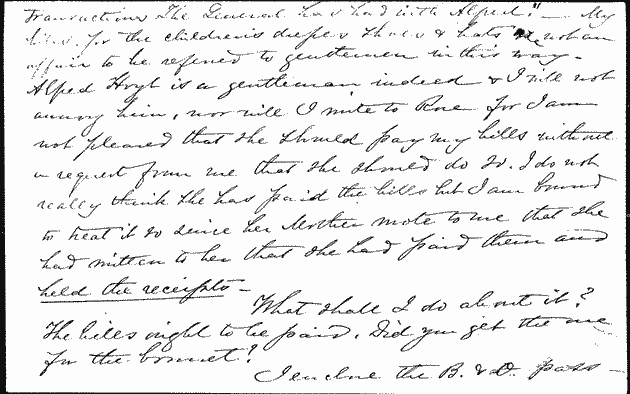 transactions The General has had with Alfred." — My
bills for the children's diapers shoes & hats are not an
affair to be referred to gentlemen in this way —
Alfred Hoyt is a gentleman indeed & I will not
annoy him, nor will I write to Rose for I am
not pleased that she should pay my bills without
a request from me that she should do so. I do not
really think she has paid the bills but I am bound
to treat it so since her Mother wrote to me that she
had written to her that she had paid them and
held the receipts —
What shall I do about it?
The bills ought to be paid. Did you get the one
for the bonnet?
I enclose the B. & O. pass —